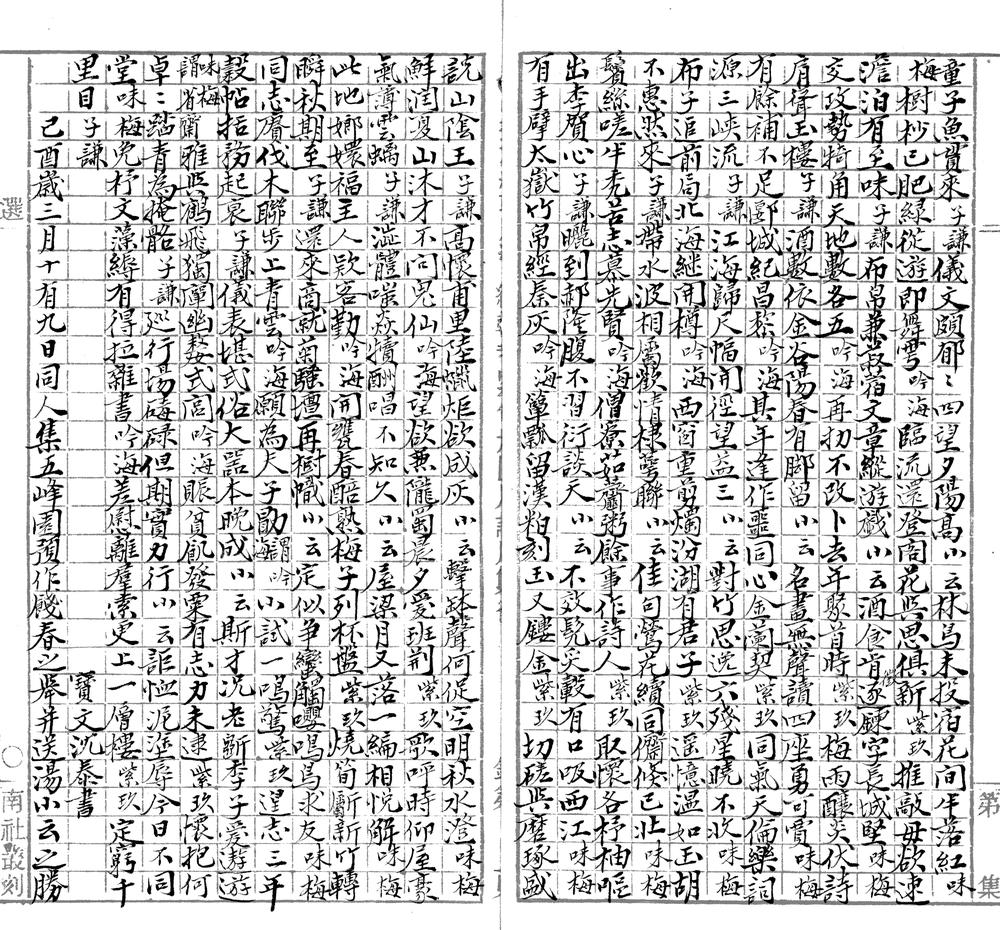 童子魚賞來子謙儀文頗郁〻四望夕陽高小云林烏未投宿花間半落紅味
梅樹杪已肥綠從游即舞雩吟海臨流還登閣花與思俱新紫玖推敲毋欲速
澹泊有至味子謙布帛兼菽宿文章縱游戲小云酒舍肯逐鍊字長城堅味梅
交攻勢犄角天地數各五吟海再扐不改卜去年聚首時紫玖梅雨釀炎伏詩
肩得玉樓子謙酒數依金谷陽春有脚留小云名畫無聲讀四座勇可賈味梅
有餘補不足郢城紀昌黎吟海其年逢作噩同心金蘭契紫玖同氣天倫樂詞
源三峽流子謙江海歸尺幅開徑望益三小云對竹思逸六殘星曉不收味梅
布子追前局北海継開樽吟海西窗重剪燭汾湖有君子紫玖遥憶温如玉胡
不惠然來子謙帶水波相屬歡情棣萼聯小云佳句鶯花續同儕倏已壯味梅
鬢絲嗟半秃苦志慕先賢吟海僧寮茹虀粥餘事作詩人紫玖取懷各杼柚嘔
出李賀心子謙曬到郝隆腹不習衍談天小云不效髡炙轂有口吸西江味梅
有手擘太嶽竹帛經秦灰吟海簞瓢留漢粕刻玉又鏤金紫玖切磋與磨琢盛
説山陰王子謙高懷甫里陸蠟炬欲成灰小云擊鉢聲何促空明秋水澄味梅
鮮潤夏山沐才不同鬼仙吟海望欲兼隴蜀晨夕愛班荆紫玖歌呼時仰屋豪
氣薄雲螭子謙澁體嗤焱犢酬唱不知久小云屋梁月又落一編相悅解味梅
此地嫏嬛福主人欵客勤吟海開甕春醅熟梅子列杯盤紫玖燒筍劚新竹轉
瞬秋期至子謙還來商就菊騷壇再樹幟小云定似爭蠻觸嚶鳴鳥求友味梅
同志賡伐木聯步上青雲吟海願為夫子勖謂吟海小試一鳴驚紫玖望志三年
穀帖括務起衰子謙儀表堪式俗大器本晚成小云斯才况老斵李子愛遨遊
味梅謂省齋雅與鶴飛獨闡幽嫠式閭吟海賑貧飢發粟有志力未逮紫玖懷抱何
卓〻踏青為掩骼子謙巡行場碌但期實力行小云詎恤泥塗辱今日不同
堂味梅免杼文藻縟有得拉雜書吟海差慰離羣索更上一層樓紫玖定窮千
里目子謙
寶文沈泰書
己酉歲三月十有九日同人集五峰園預作餞春之舉并送湯小云之勝
二
第
集
選
南社叢刻